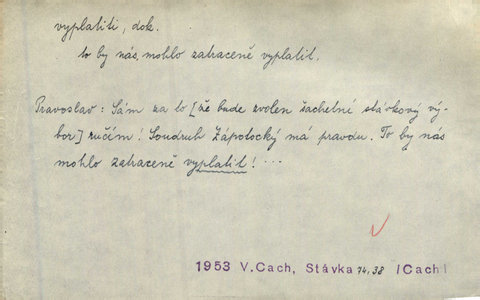 vyplatiti, dok.
to by nás mohlo zatraceně vyplatit.
Pravoslav: Sám za to [že bude zvolen šachetní stávkový vý-
bor] ručím! Soudruh Zápotocký má pravdu. To by nás
mohlo zatraceně vyplatit! ...
1953 V.Cach, Stávka 74,38 /Cach/